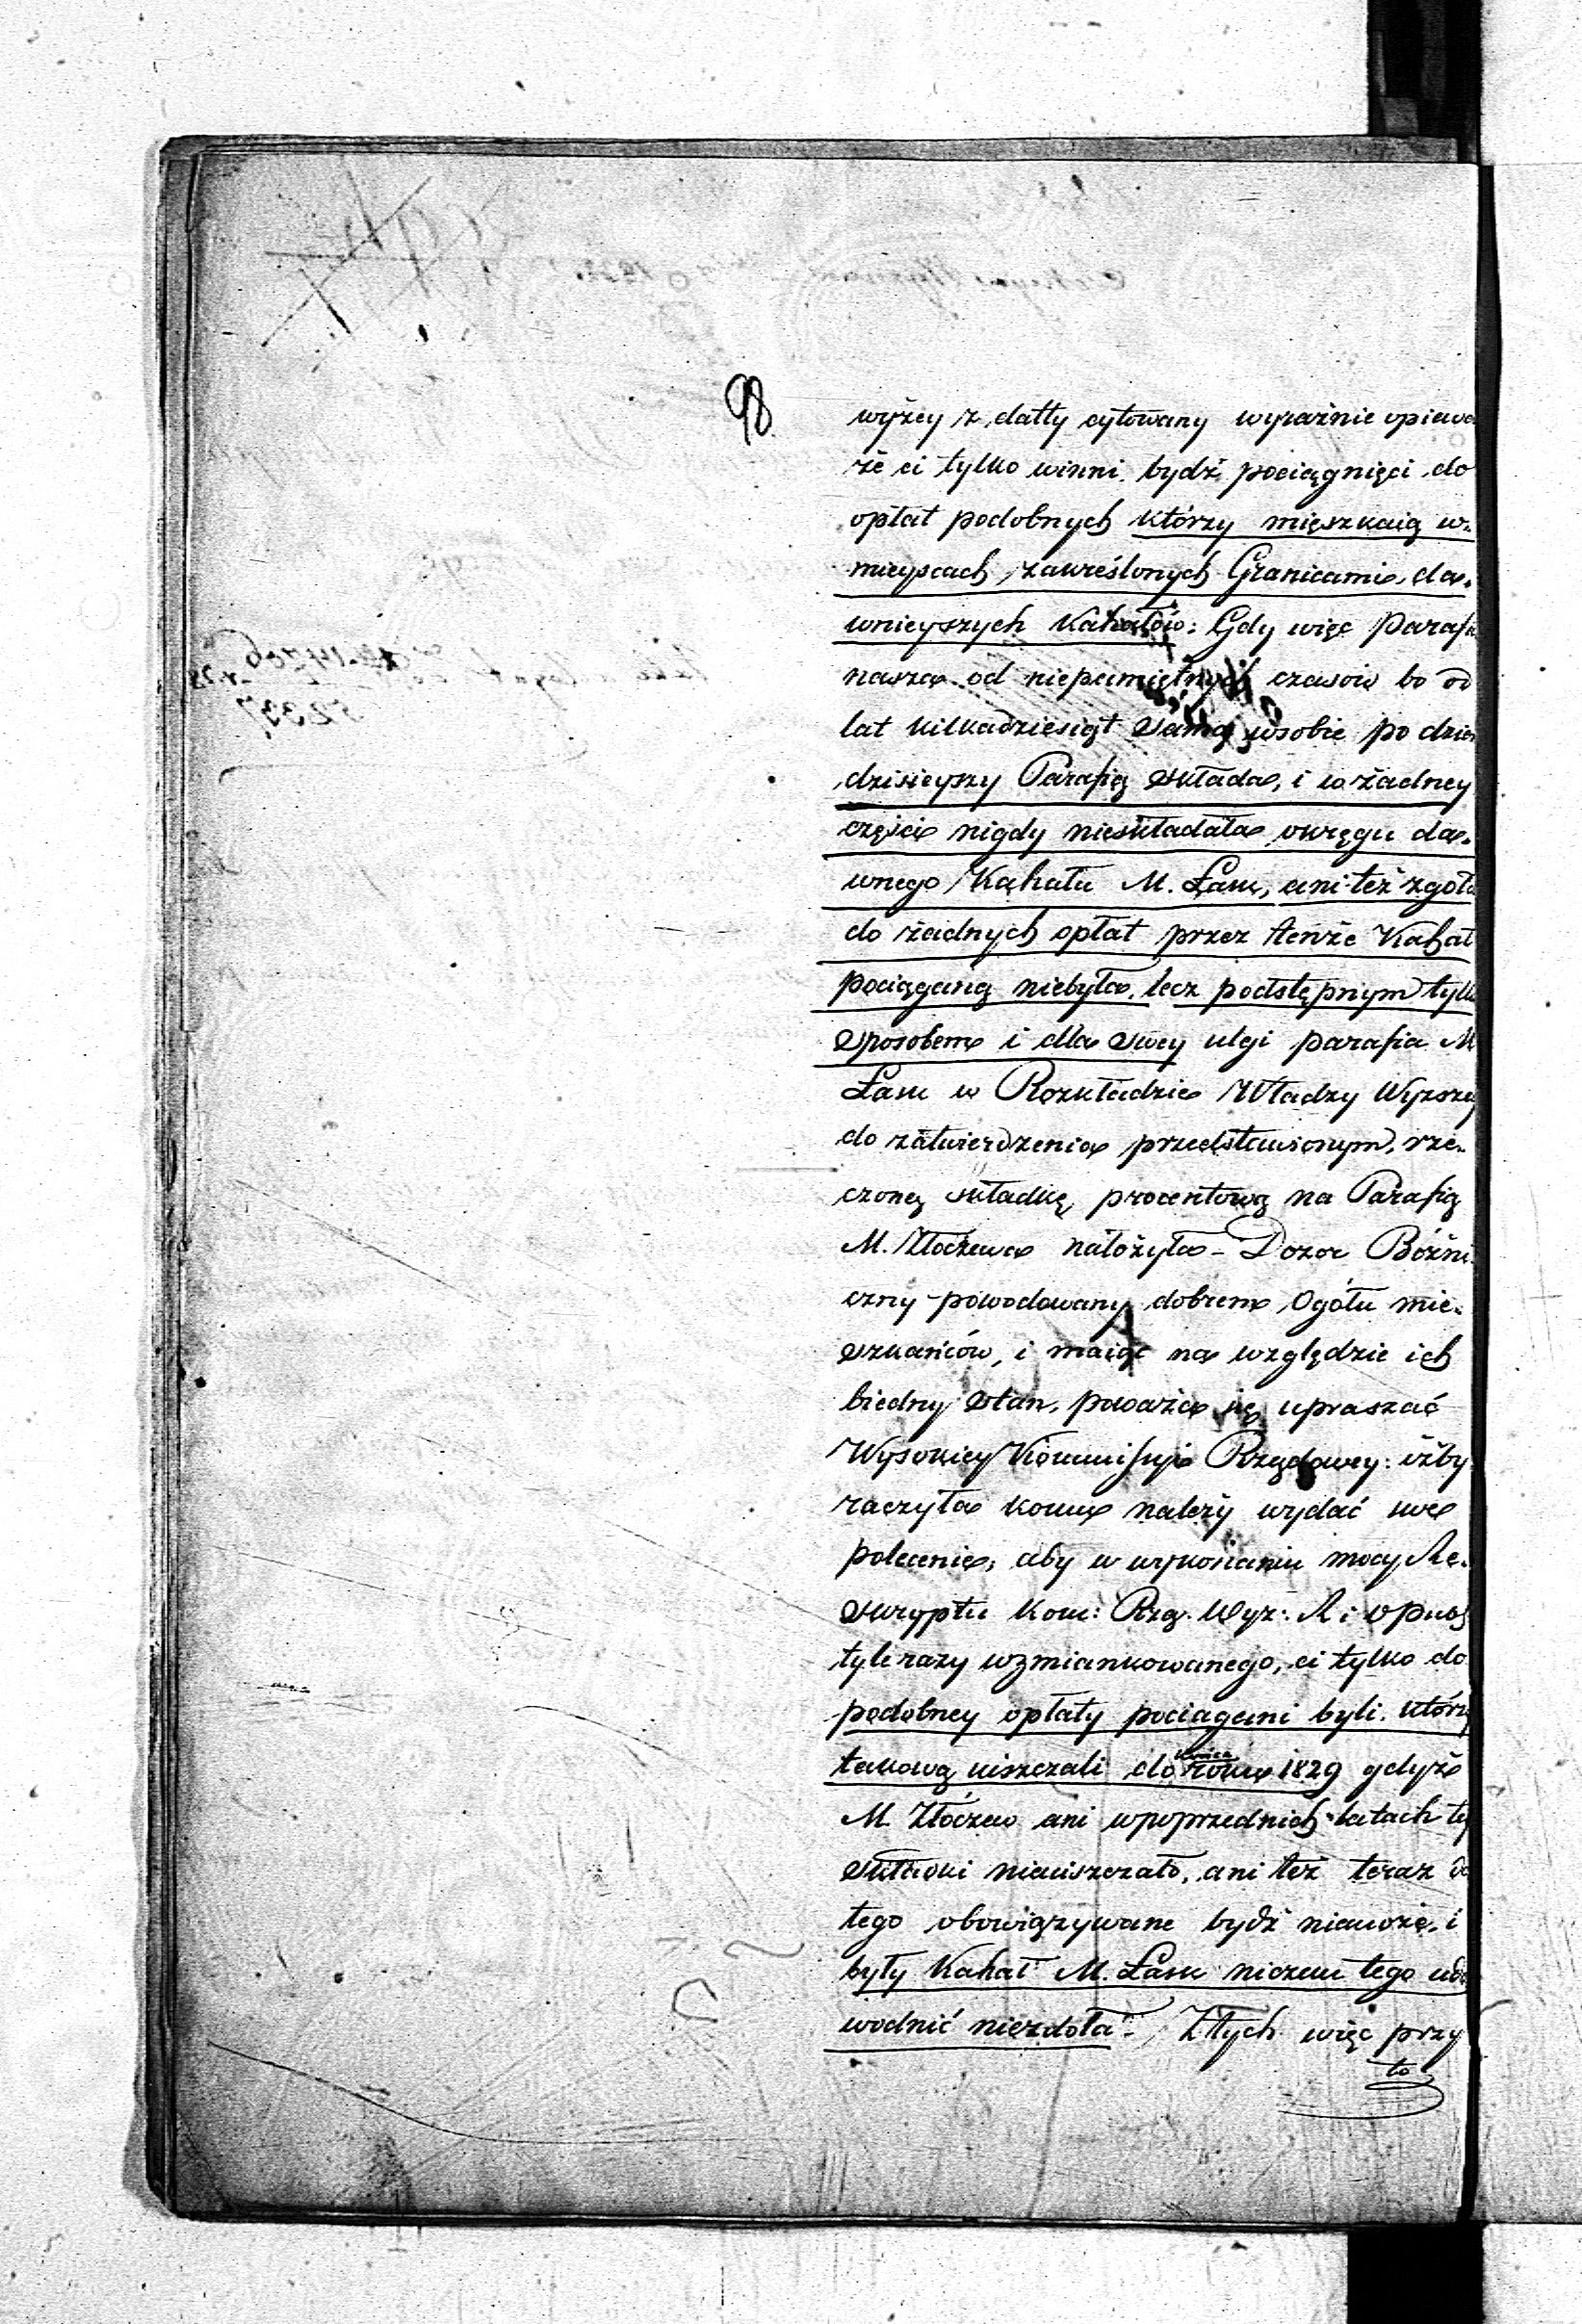 98
wyżey z datty cytowany wyraźnie opiewa
że ci tylko winni bydź pociągnięci do
opłat podobnych którzy mięszkaią w
mieyscach zakreślonych Granicami da-
wnieyszych Kahałów: Gdy więc Parafia
nasza od niepamiętnych czasów bo od
lat kilkadziesiąt sama wsobie po dzień
dzisieyszy Parafią składa, i w żadney
części nigdy nieskładała okręgu da-
wnego Kahału M. Łasku, ani też zgoła
do żadnych opłat przez tenże Kahał
pociąganą niebyła, lecz podstępnym tylko
sposobem i dla swey ulgi parafia M
Łasku w Rozkładzie Władzy Wyższey
do zatwierdzenia przedstawionym, rze-
czoną składkę procentową na Parafią
M. Złoczewa nałożyła - Dozor Bóźni-
czny powodowany dobrem Ogółu mie-
szkańców, i maiąc na względzie ich
biedny stan, poważa się upraszać
Wysokiey Kommissyi Rządowey: iżby
raczyła komu należy wydać swe
polecenie, aby w wykonaniu mocy Re-
skryptu Kom: Rzą: Wyz: R i O Pub
tyle razy wzmiankowanego, ci tylko do
podobney opłaty pociągani byli, którzy
takową uiszczali do końca roku 1829 gdyż
M. Złoczew ani wpoprzednich latach tey
składki nieuiszczało, ani też teraz do
tego obowiązywane bydź niemoże, i
były Kahał M. Łasku niczem tego udo
wodnić niezdoła - Ztych więc przy
to